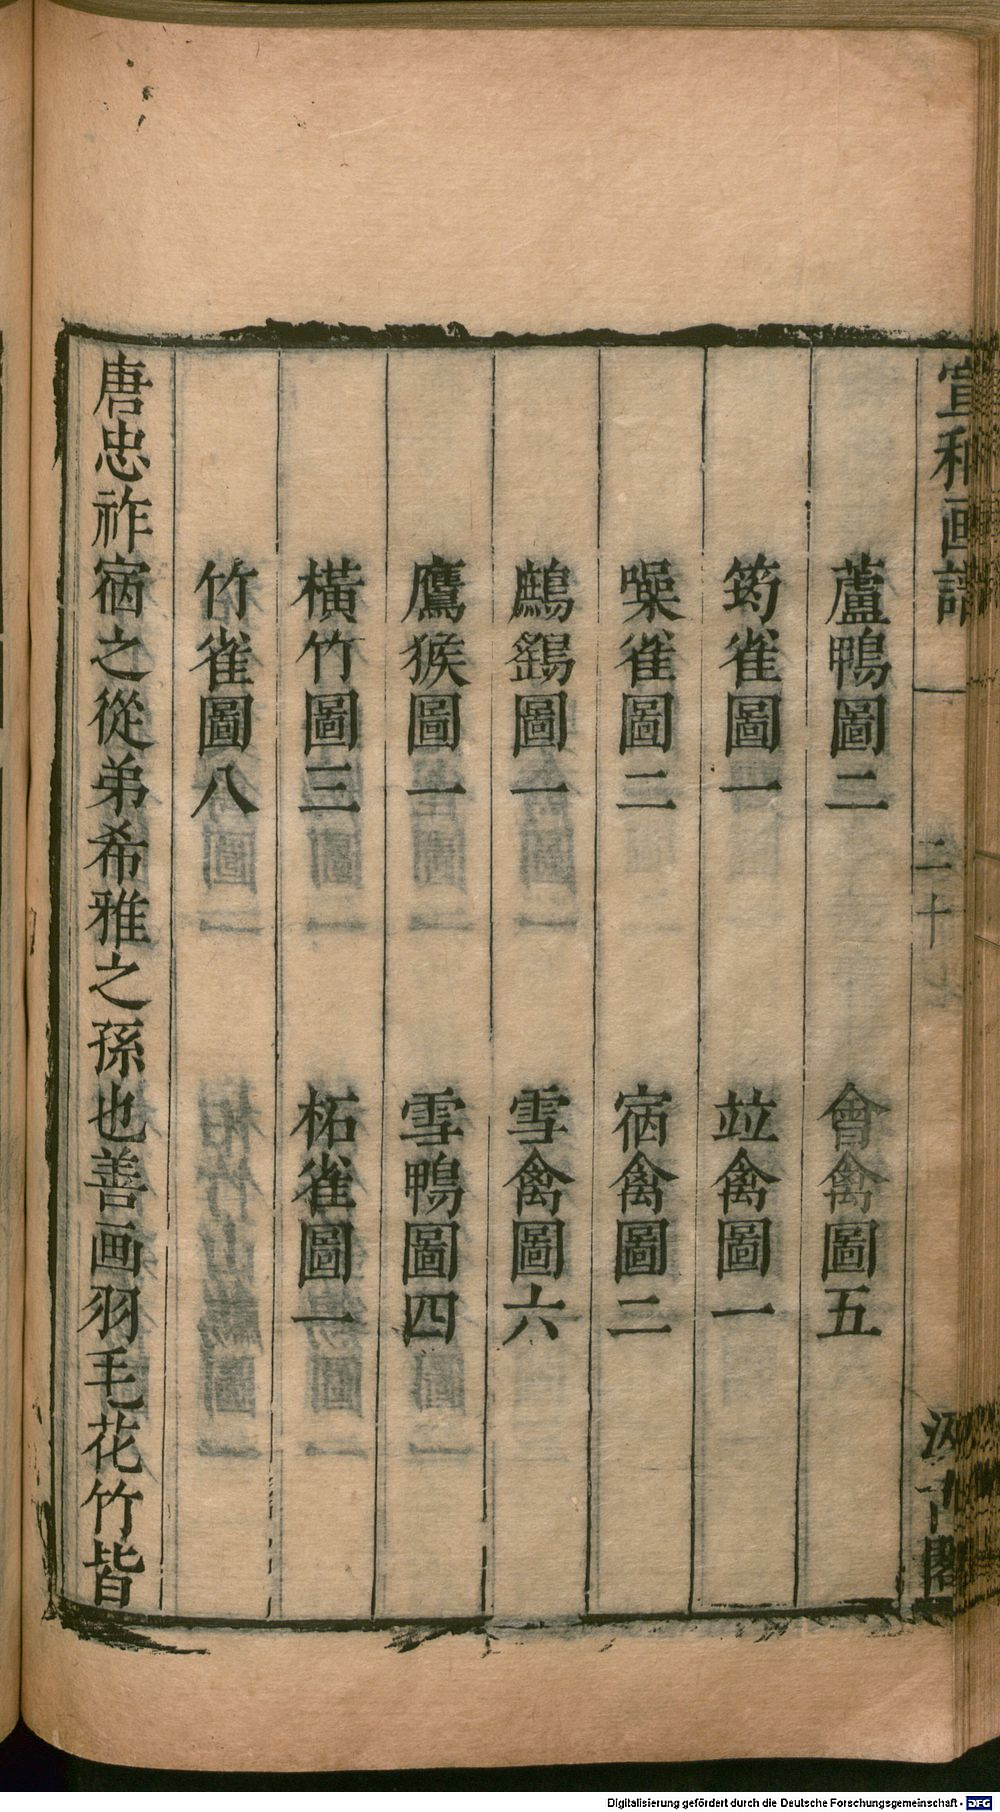 宣和画譜 二十 汲古閣
蘆鴨圖二 會禽圖五
筠雀圖一 竝禽圖一
噪雀圖二 宿禽圖二
鷓鷀圖一 雪禽圖六
鷹猴圖一 雪鴨圖四
橫竹圖三 柘雀圖一
竹雀圖八
唐忠祚宿之從弟希雅之孫也善画羽毛花竹皆
Digitalisierung gefördert durch die Deutsche Forschungsgemeinschaft - DFG